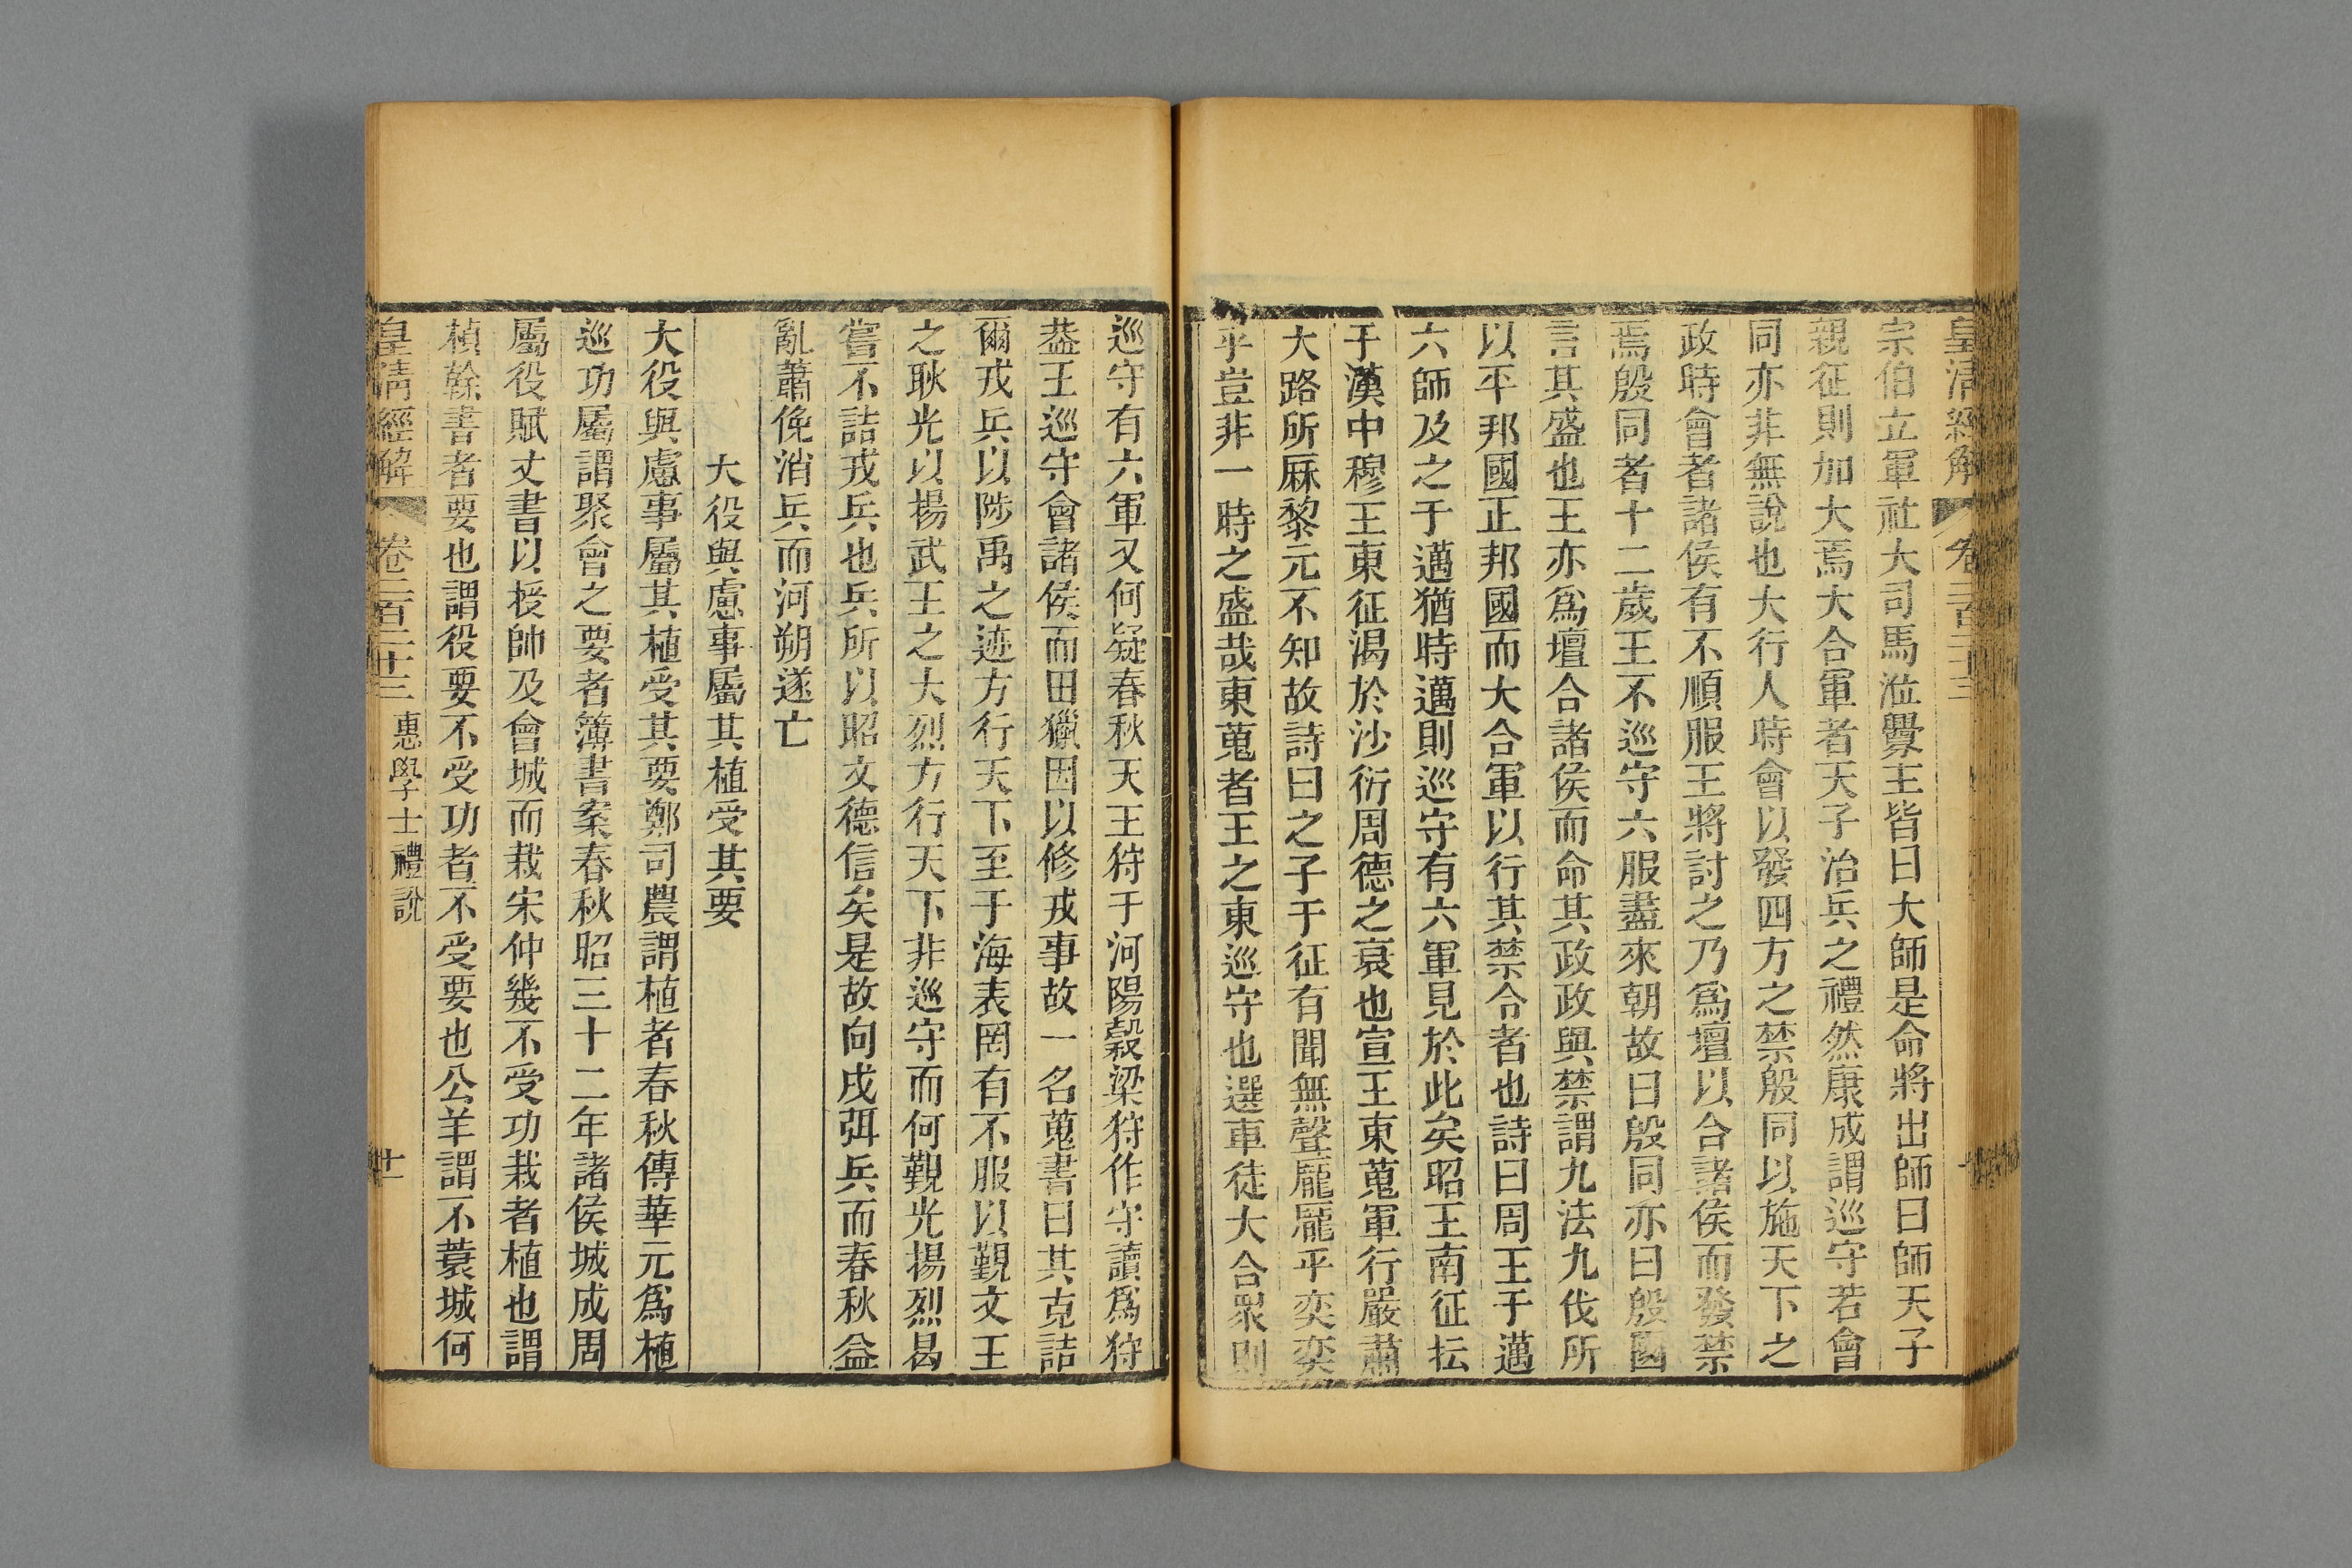 皇清經解
卷二百二十三
宗伯立軍社大司馬涖釁主皆曰大師是命將出師曰師天子
親征則加大焉大合軍者天子治兵之禮然康成謂巡守若會
同亦非無說也大行人時會以發四方之禁殷同以施天下之
政時會者諸侯有不順服王將討之乃爲壇以合諸侯而發禁
焉殷同者十二歲王不巡守六服盡來朝故曰殷同亦曰殷國
言其盛也王亦爲壇合諸侯而命其政政與禁謂九法九伐所
以平邦國正邦國而大合軍以行其禁令者也詩曰周王于邁
六師及之于邁猶時邁則巡守有六軍見於此矣昭王南征抎
于漢中穆王東征渴於沙衍周德之衰也宣王東蒐軍行嚴肅
大路所厤黎元不知故詩曰之子于征有聞無聲龎龎乎奕奕
乎豈非一時之盛哉東蒐者王之東巡守也選車徒大合眾則
巡守有六軍又何疑春秋天王狩于河陽穀梁狩作守讀爲狩
葢王巡守會諸侯而田獵因以修戎事故一名蒐書曰其克詰
爾戎兵以陟禹之迹方行天下至于海表罔有不服以覲文王
之耿光以揚武王之大烈方行天下非巡守而何覲光揚烈曷
嘗不詰戎兵也兵所以昭文德信矣是故向戌弭兵而春秋益
亂蕭俛消兵而河朔遂亡
大役與慮事屬其植受其要
大役與慮事屬其植受其要鄭司農謂植者春秋傳華元爲植
巡功屬謂聚會之要者簿書案春秋昭三十二年諸侯城成周
屬役賦丈書以授帥及會城而栽宋仲幾不受功栽者植也謂
楨榦書者要也謂役要不受功者不受要也公羊謂不蓑城何
皇清經解
卷二百二十三
惠學士禮說
十一